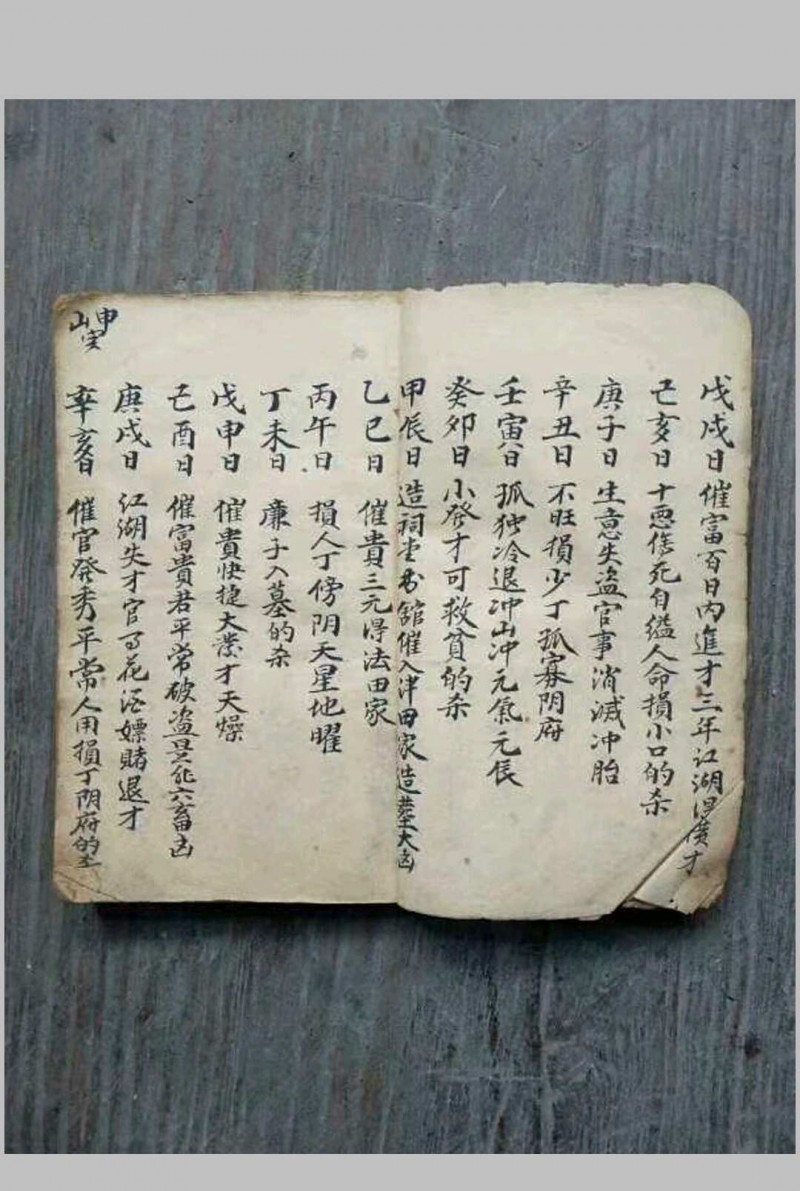 戊戌日催富百日内進才三年江湖得廣才
己亥日十惡傷死自縊人命損小口的杀
庚子日生意失盗官事消滅冲胎
辛丑日不旺損少丁孤寡阴府
壬寅日孤独冷退冲山冲元氣元辰
癸卯日小發才可救貧的杀
甲辰日造祠堂书舘催入泮田家造塟大凶
乙巳日催貴三元得法田家
丙午日損人丁傍阴天星地曜
丁未日廉子入墓的杀
戊申日催貴快捷大業才天燥
己酉日催富貴若平常破盗六畜凶
庚戌日江湖失才官花酒嫖賭退才
辛亥日催官發秀平常人用損丁阴府的
申山寅